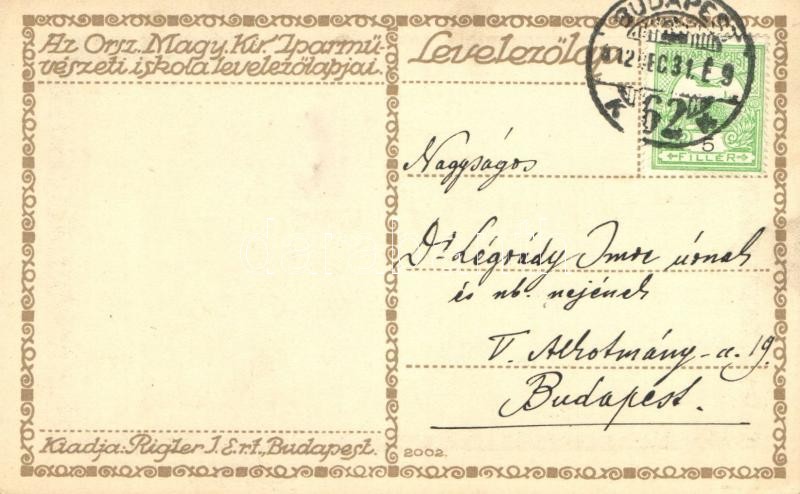 Az Orsz. Magy. Kir. Iparmű-
vészeti iskola levelezőlapjai.
Levelezőlap
BUDAPEST
912 DEC 31. E 9
K 62
5
FILLÉR
Nagyságos
Dr Légrády Imre úrnak
és nb. nejének
V. Alkotmány-u. 19.
Budapest.
Kiadja: Rigler J. Ert., Budapest.
2002.